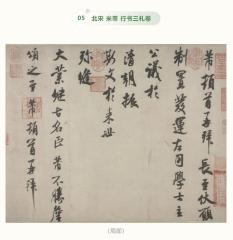 05 北宋 米芾 行书三札卷
芾頓首再拜 長至伏願
制置發運左司學士主
公議於
清朝振
斯文於來世
弥縫
大業継古名臣芾不勝
頌之至 芾頓首再拜
(局部)